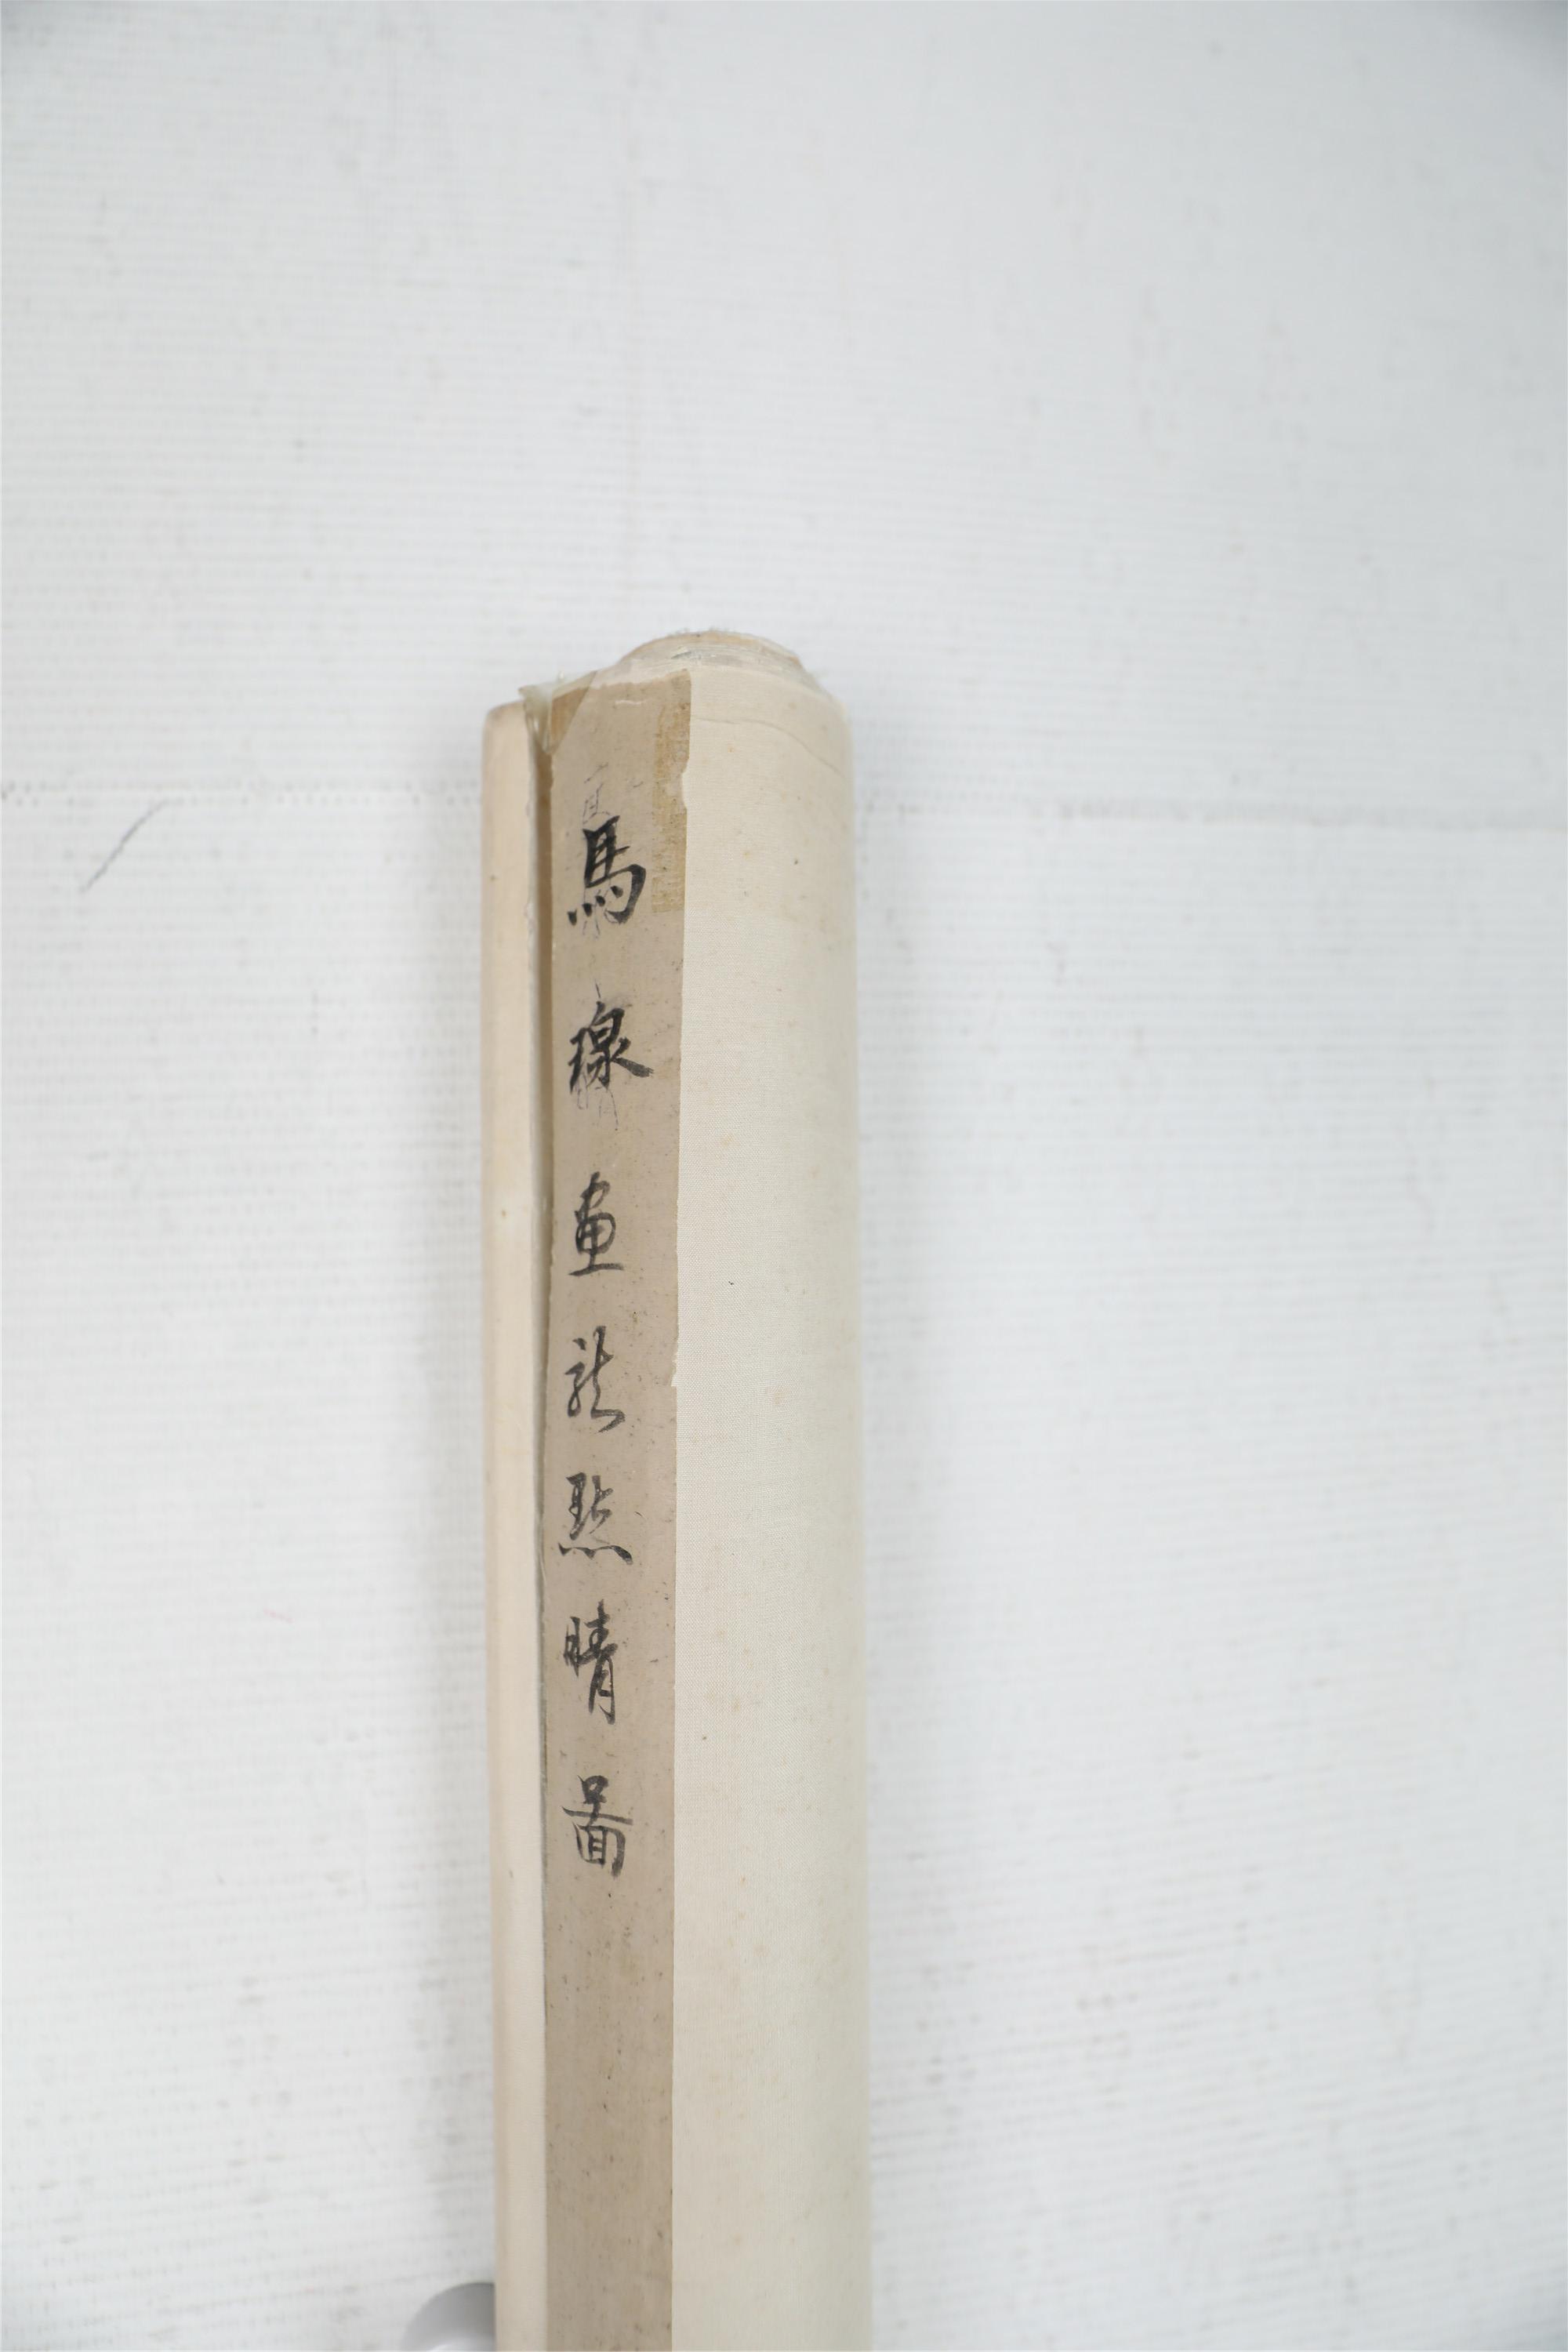 馬瑔畫龍點睛圖